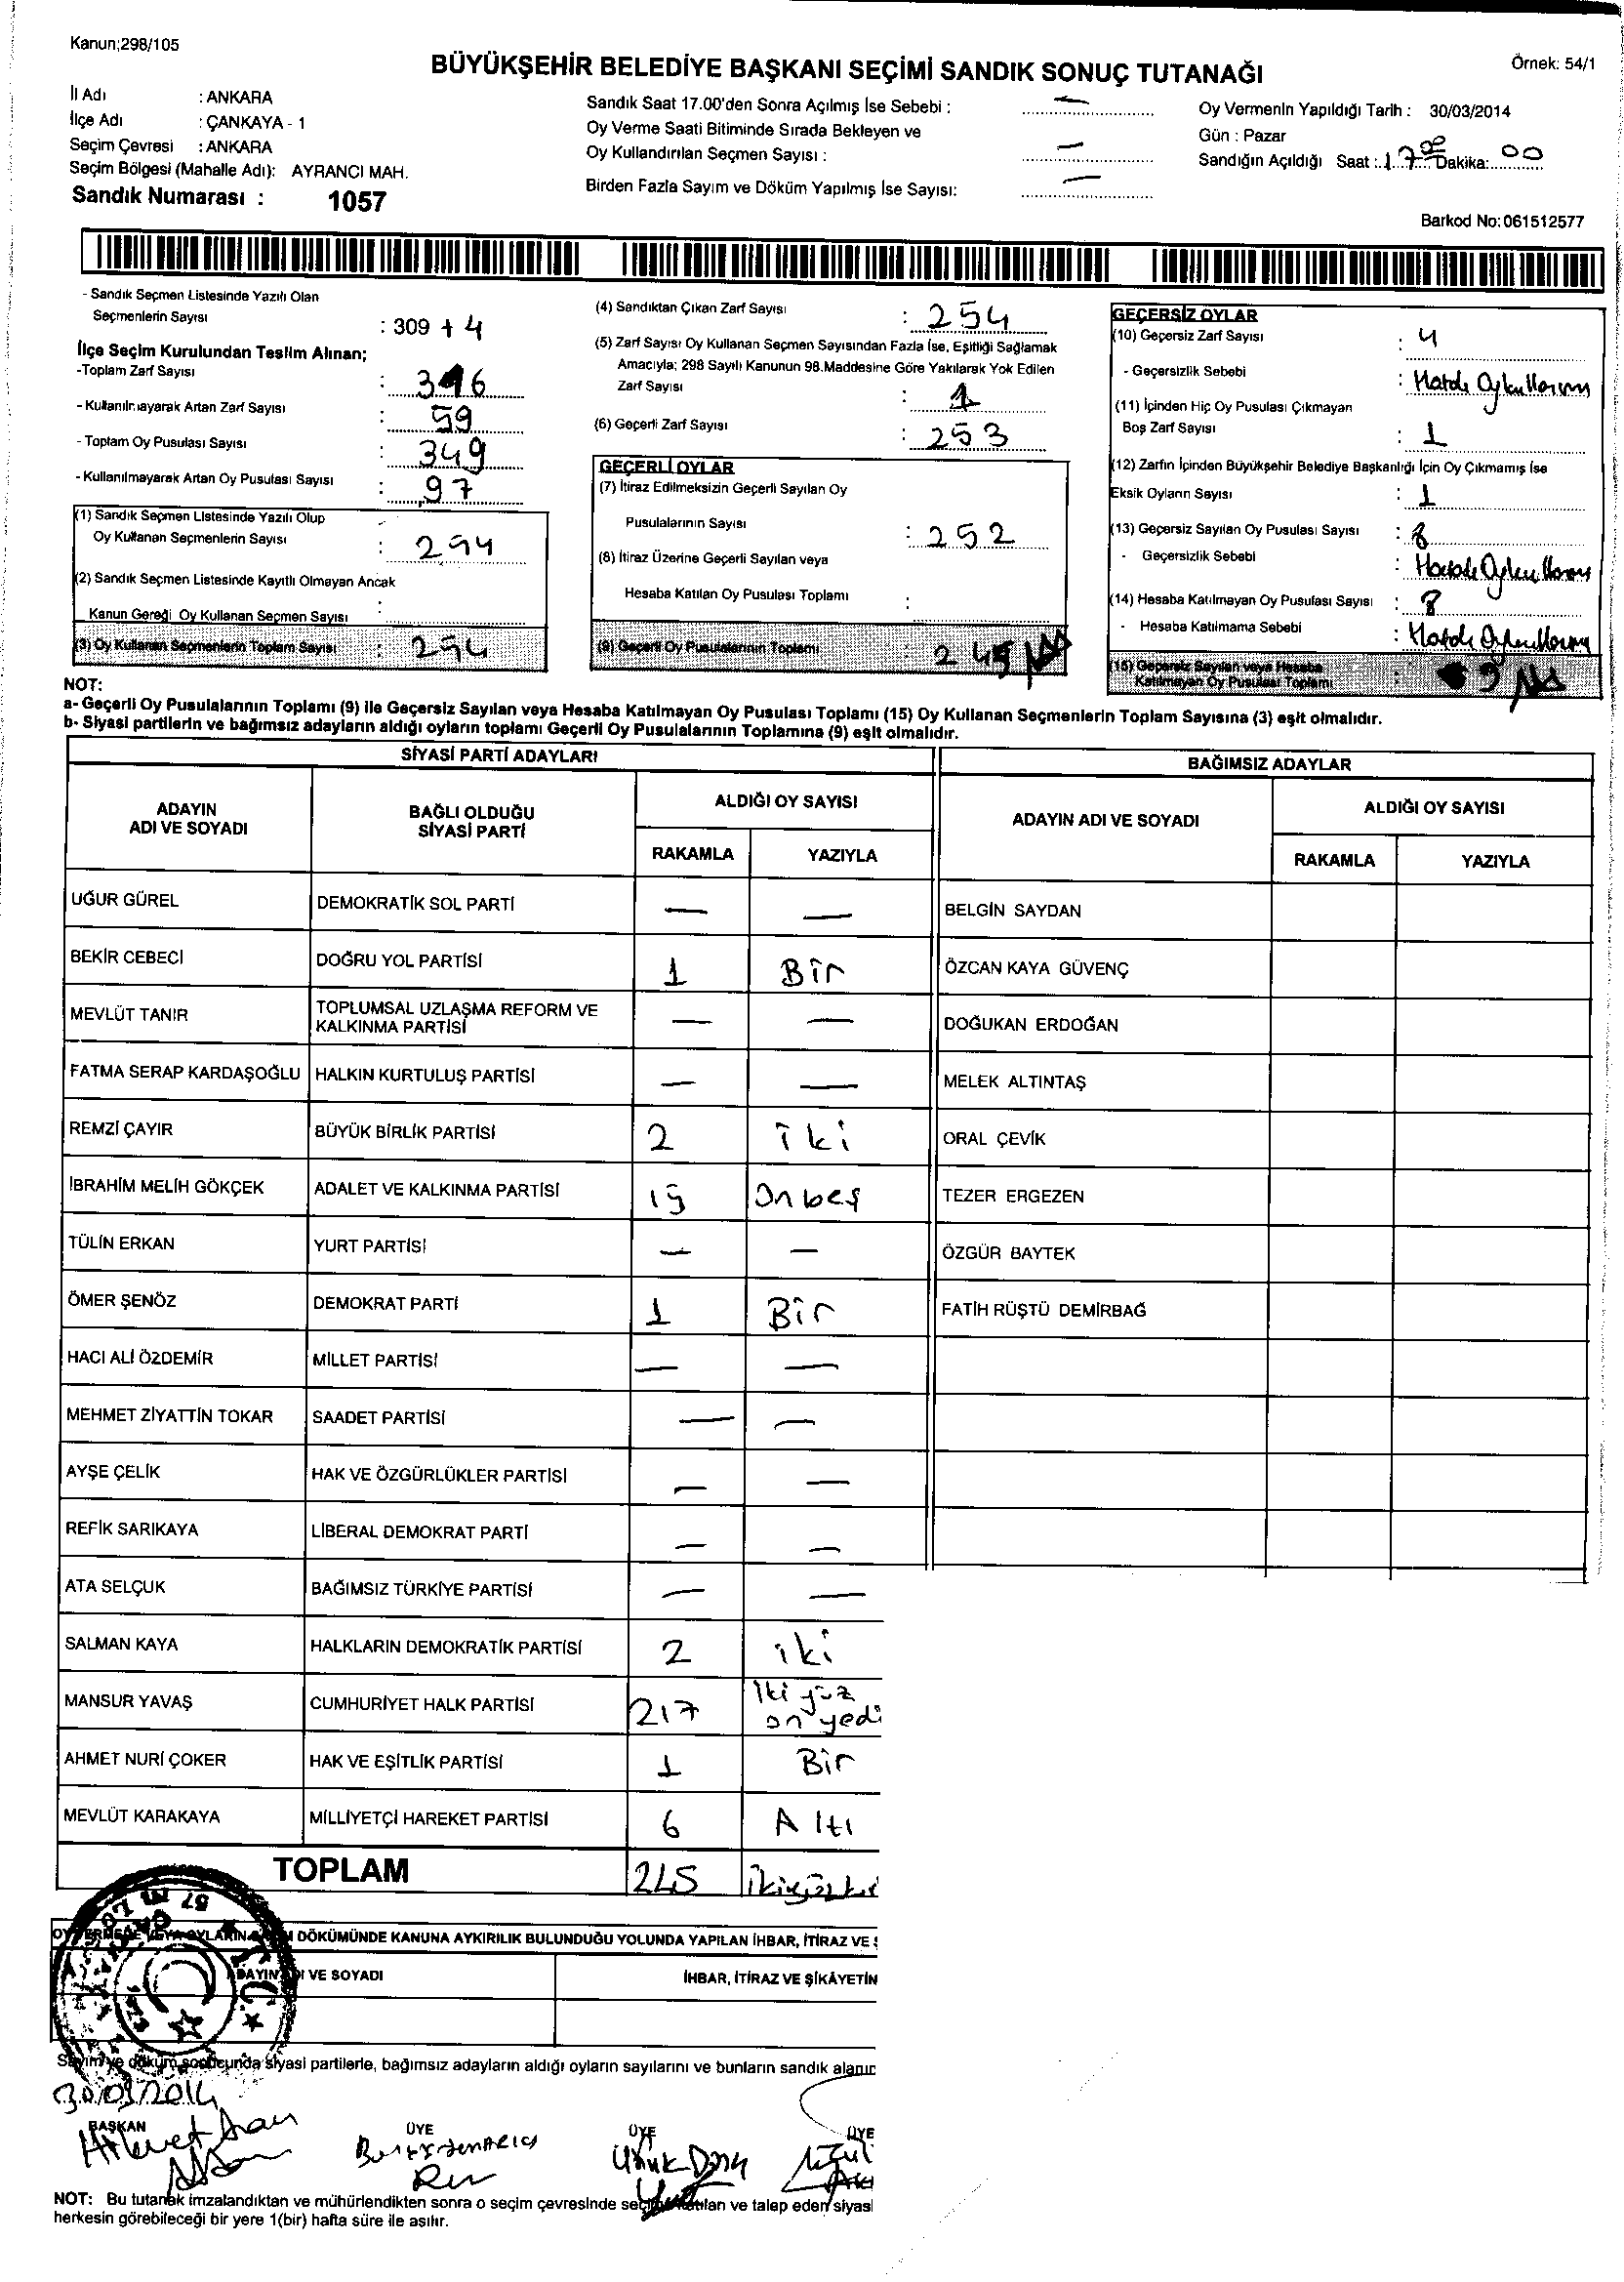 Kanun;298/105
BÜYÜKŞEHİR BELEDİYE BAŞKANI SEÇİMİ SANDIK SONUÇ TUTANAĞI
Örnek: 54/1
İl Adı : ANKARA
İlçe Adı : ÇANKAYA - 1
Seçim Çevresi : ANKARA
Seçim Bölgesi (Mahalle Adı): AYRANCI MAH.
Sandık Numarası : 1057
Sandık Saat 17.00'den Sonra Açılmış İse Sebebi : —
Oy Verme Saati Bitiminde Sırada Bekleyen ve
Oy Kullandırılan Seçmen Sayısı : —
Birden Fazla Sayım ve Döküm Yapılmış İse Sayısı: —
Oy Vermenin Yapıldığı Tarih : 30/03/2014
Gün : Pazar
Sandığın Açıldığı Saat : 17 Dakika: 00
Barkod No: 061512577
- Sandık Seçmen Listesinde Yazılı Olan
Seçmenlerin Sayısı : 309 + 4
İlçe Seçim Kurulundan Teslim Alınan;
-Toplam Zarf Sayısı :
- Kullanılmayarak Artan Zarf Sayısı : 59
- Toplam Oy Pusulası Sayısı : 349
- Kullanılmayarak Artan Oy Pusulası Sayısı : 97
(1) Sandık Seçmen Listesinde Yazılı Olup
Oy Kullanan Seçmenlerin Sayısı :
(2) Sandık Seçmen Listesinde Kayıtlı Olmayan Ancak
Kanun Gereği Oy Kullanan Seçmen Sayısı :
(3) Oy Kullanan Seçmenlerin Toplam Sayısı : 254
(4) Sandıktan Çıkan Zarf Sayısı : 254
(5) Zarf Sayısı Oy Kullanan Seçmen Sayısından Fazla İse, Eşitliği Sağlamak
Amacıyla; 298 Sayılı Kanunun 98.Maddesine Göre Yakılarak Yok Edilen
Zarf Sayısı : 1
(6) Geçerli Zarf Sayısı : 253
GEÇERLİ OYLAR
(7) İtiraz Edilmeksizin Geçerli Sayılan Oy
Pusulalarının Sayısı : 252
(8) İtiraz Üzerine Geçerli Sayılan veya
Hesaba Katılan Oy Pusulası Toplamı :
(9) Geçerli Oy Pusulalarının Toplamı : 245
GEÇERSİZ OYLAR
(10) Geçersiz Zarf Sayısı : 4
- Geçersizlik Sebebi : Hatalı Oy kullanımı
(11) İçinden Hiç Oy Pusulası Çıkmayan
Boş Zarf Sayısı : 1
(12) Zarfın İçinden Büyükşehir Belediye Başkanlığı İçin Oy Çıkmamış İse
Eksik Oyların Sayısı : 1
(13) Geçersiz Sayılan Oy Pusulası Sayısı : 8
- Geçersizlik Sebebi : Hatalı Oy kullanımı
(14) Hesaba Katılmayan Oy Pusulası Sayısı : 8
- Hesaba Katılmama Sebebi : Hatalı Oy kullanımı
(15) Geçersiz Sayılan veya Hesaba
Katılmayan Oy Pusulası Toplamı : 9
NOT:
a- Geçerli Oy Pusulalarının Toplamı (9) ile Geçersiz Sayılan veya Hesaba Katılmayan Oy Pusulası Toplamı (15) Oy Kullanan Seçmenlerin Toplam Sayısına (3) eşit olmalıdır.
b- Siyasi partilerin ve bağımsız adayların aldığı oyların toplamı Geçerli Oy Pusulalarının Toplamına (9) eşit olmalıdır.
SİYASİ PARTİ ADAYLARI
ADAYIN ADI VE SOYADI BAĞLI OLDUĞU SİYASİ PARTİ ALDIĞI OY SAYISI
RAKAMLA YAZIYLA
UĞUR GÜREL DEMOKRATİK SOL PARTİ — —
BEKİR CEBECİ DOĞRU YOL PARTİSİ 1 Bir
MEVLÜT TANIR TOPLUMSAL UZLAŞMA REFORM VE KALKINMA PARTİSİ — —
FATMA SERAP KARDAŞOĞLU HALKIN KURTULUŞ PARTİSİ — —
REMZİ ÇAYIR BÜYÜK BİRLİK PARTİSİ 2 iki
İBRAHİM MELİH GÖKÇEK ADALET VE KALKINMA PARTİSİ 15 Onbeş
TÜLİN ERKAN YURT PARTİSİ — —
ÖMER ŞENÖZ DEMOKRAT PARTİ 1 Bir
HACI ALİ ÖZDEMİR MİLLET PARTİSİ — —
MEHMET ZİYATTİN TOKAR SAADET PARTİSİ — —
AYŞE ÇELİK HAK VE ÖZGÜRLÜKLER PARTİSİ — —
REFİK SARIKAYA LİBERAL DEMOKRAT PARTİ — —
ATA SELÇUK BAĞIMSIZ TÜRKİYE PARTİSİ — —
SALMAN KAYA HALKLARIN DEMOKRATİK PARTİSİ 2 iki
MANSUR YAVAŞ CUMHURİYET HALK PARTİSİ 217 İki yüz on yedi
AHMET NURİ ÇOKER HAK VE EŞİTLİK PARTİSİ 1 Bir
MEVLÜT KARAKAYA MİLLİYETÇİ HAREKET PARTİSİ 6 Altı
TOPLAM 245
BAĞIMSIZ ADAYLAR
ADAYIN ADI VE SOYADI ALDIĞI OY SAYISI
RAKAMLA YAZIYLA
BELGİN SAYDAN
ÖZCAN KAYA GÜVENÇ
DOĞUKAN ERDOĞAN
MELEK ALTINTAŞ
ORAL ÇEVİK
TEZER ERGEZEN
ÖZGÜR BAYTEK
FATİH RÜŞTÜ DEMİRBAĞ
DÖKÜMÜNDE KANUNA AYKIRILIK BULUNDUĞU YOLUNDA YAPILAN İHBAR, İTİRAZ VE Ş
VE SOYADI İHBAR, İTİRAZ VE ŞİKÂYETİN
siyasi partilerle, bağımsız adayların aldığı oyların sayılarını ve bunların sandık alanın
30/03/2014
BAŞKAN ÜYE ÜYE ÜYE
NOT: Bu tutanak imzalandıktan ve mühürlendikten sonra o seçim çevresinde ve talep eden siyasi
herkesin görebileceği bir yere 1(bir) hafta süre ile asılır.